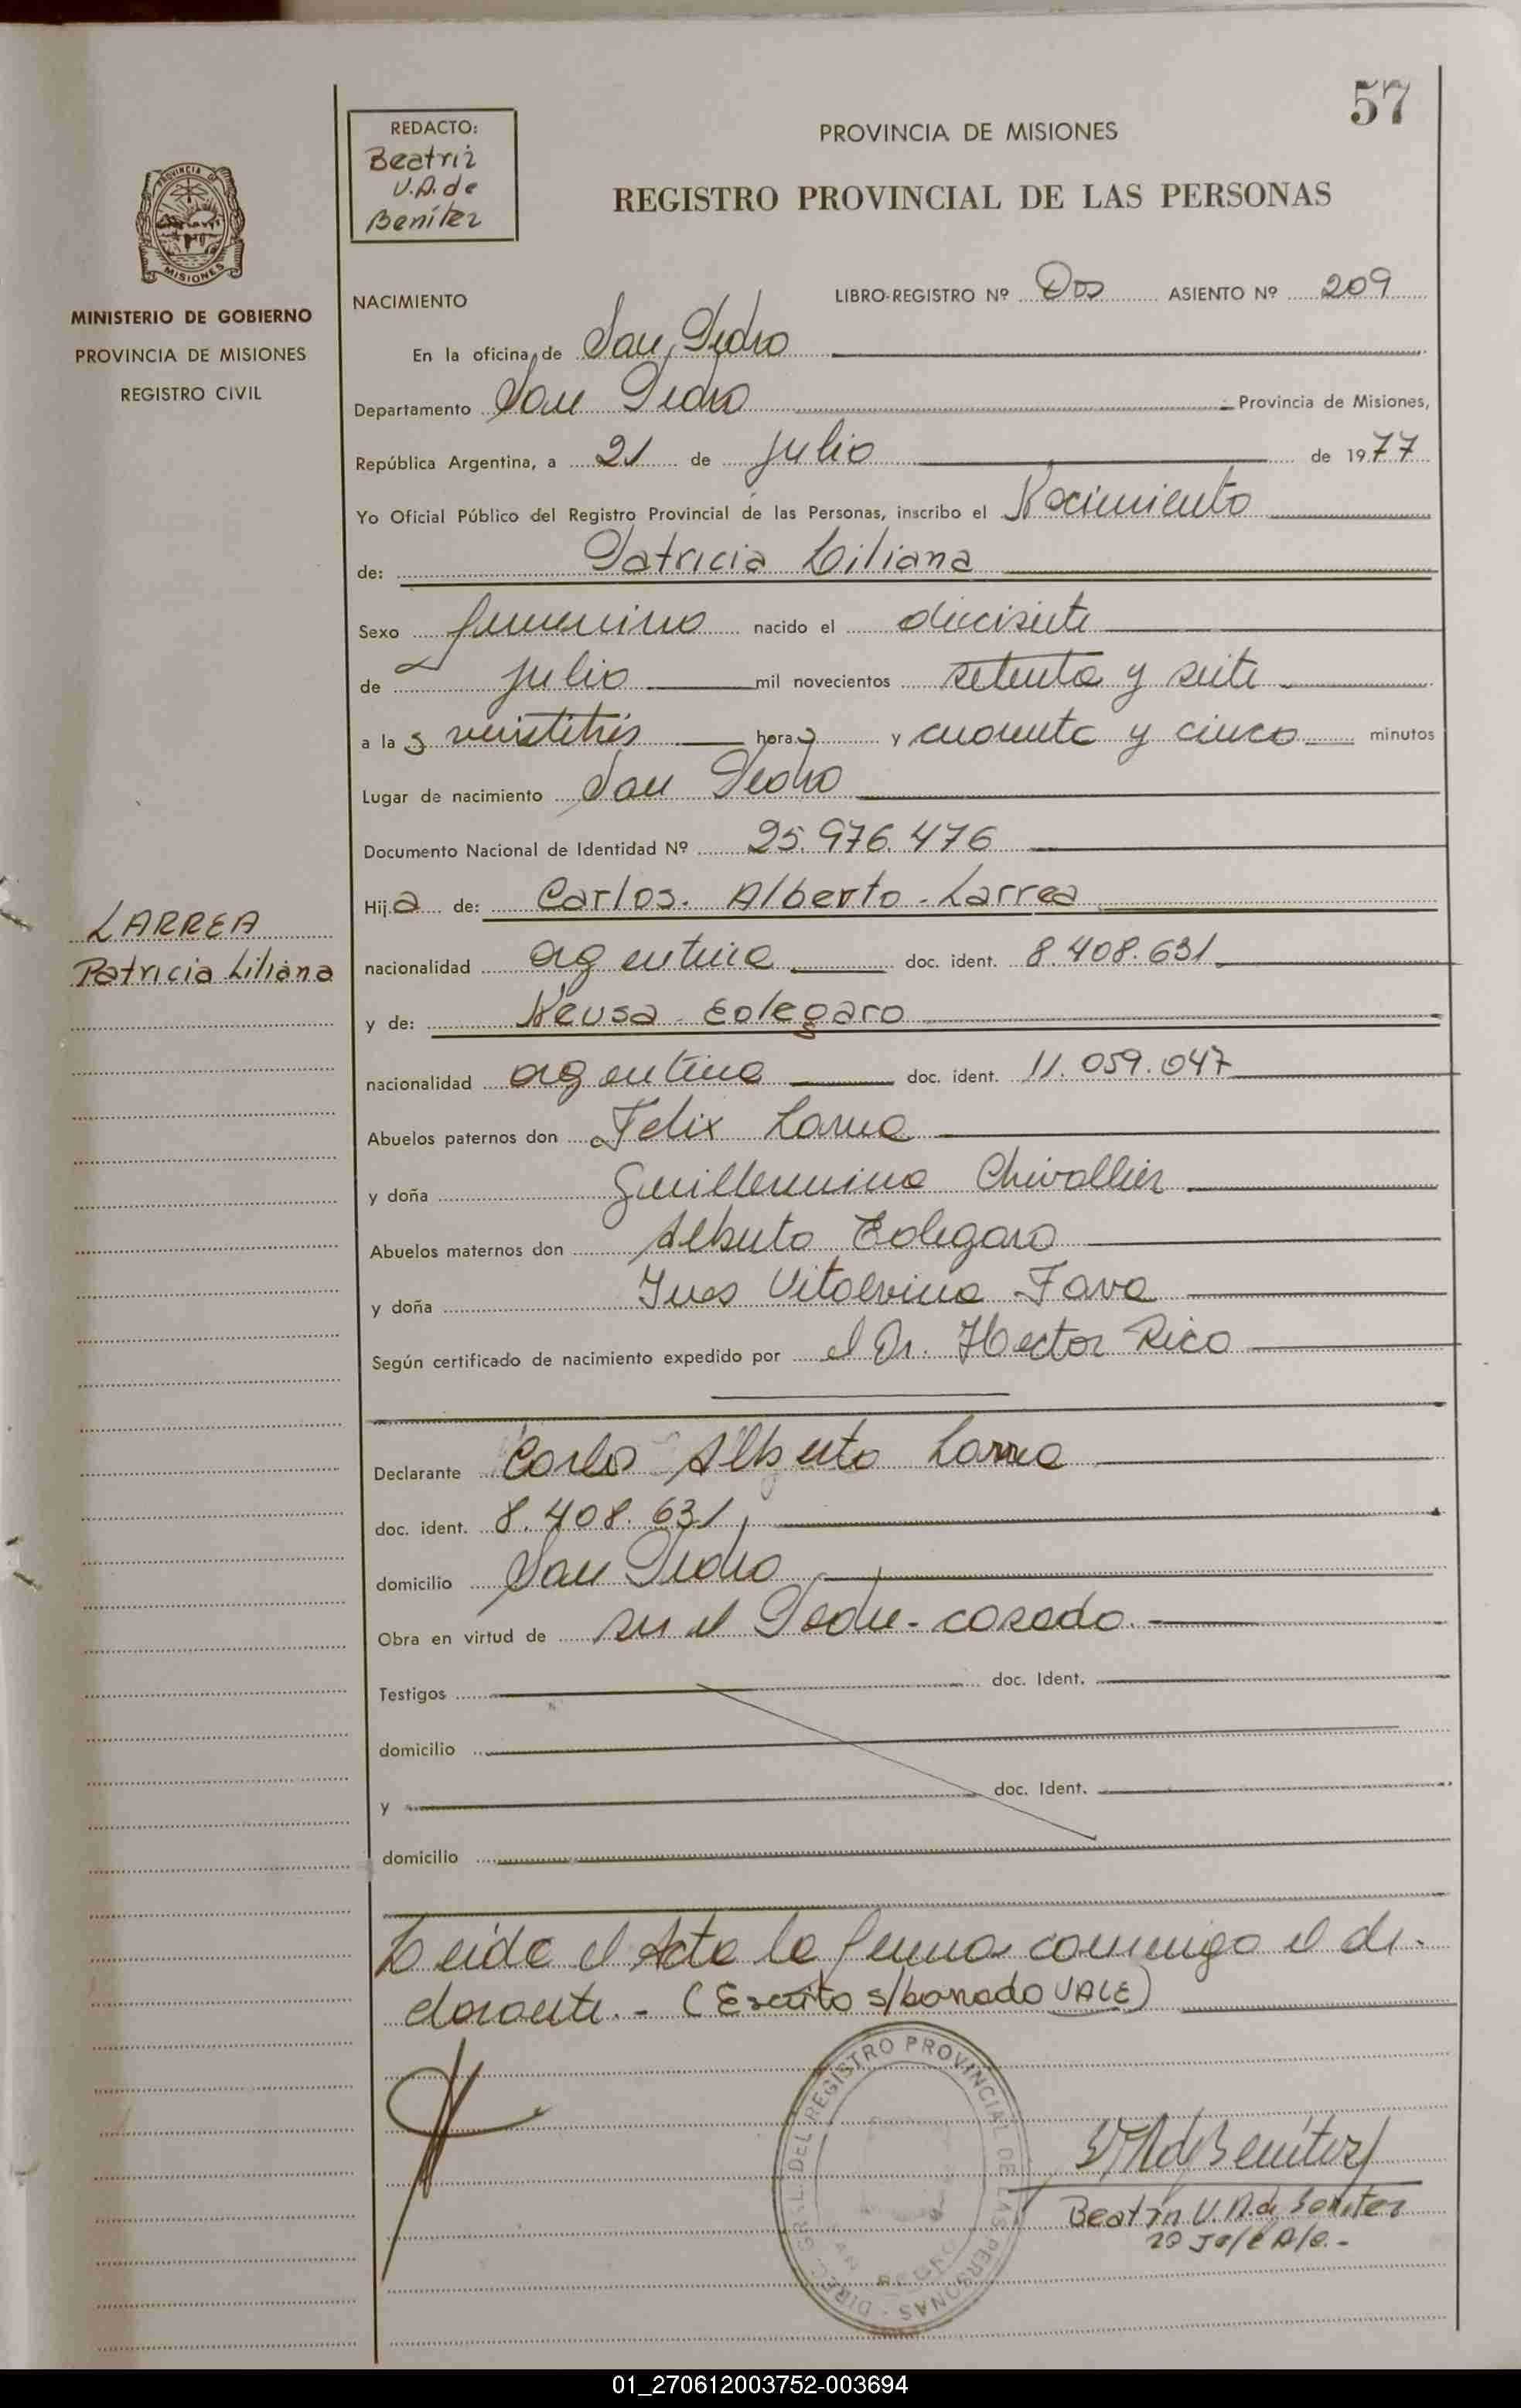 57
REDACTO:
Beatriz
V.A. de
Benítez
PROVINCIA DE MISIONES
REGISTRO PROVINCIAL DE LAS PERSONAS
PROVINCIA DE
MISIONES
MINISTERIO DE GOBIERNO
PROVINCIA DE MISIONES
REGISTRO CIVIL
NACIMIENTO LIBRO-REGISTRO Nº Dos ASIENTO Nº 209
En la oficina de San Pedro
Departamento San Pedro Provincia de Misiones,
República Argentina, a 21 de julio de 1977
Yo Oficial Público del Registro Provincial de las Personas, inscribo el Nacimiento
de: Patricia Liliana
Sexo femenino nacido el diecisiete
de julio mil novecientos setenta y siete
a las veintitrés horas y cuarenta y cinco minutos
Lugar de nacimiento San Pedro
Documento Nacional de Identidad Nº 25.976.476
Hija de: Carlos Alberto Larrea
LARREA
Patricia Liliana
nacionalidad argentina doc. ident. 8.408.631
y de: Neusa Eolegaro
nacionalidad argentina doc. ident. 11.059.047
Abuelos paternos don Felix Larrea
y doña Guillermina Chivallier
Abuelos maternos don Alberto Eolegaro
y doña Ines Vitalvina Fava
Según certificado de nacimiento expedido por el Dr. Hector Rico
Declarante Carlos Alberto Larrea
doc. ident. 8.408.631
domicilio San Pedro
Obra en virtud de ser el Padre - casado.
Testigos doc. Ident.
domicilio
y doc. Ident.
domicilio
Leída el Acta la firma conmigo el de-
clarante. - (Escrito s/borrado VALE)
DIREC. GRAL. DEL REGISTRO PROVINCIAL DE LAS PERSONAS
SAN PEDRO
VA de Benítez
Beatriz V.A. de Benitez
2º Jefe A/c. -
01_270612003752-003694